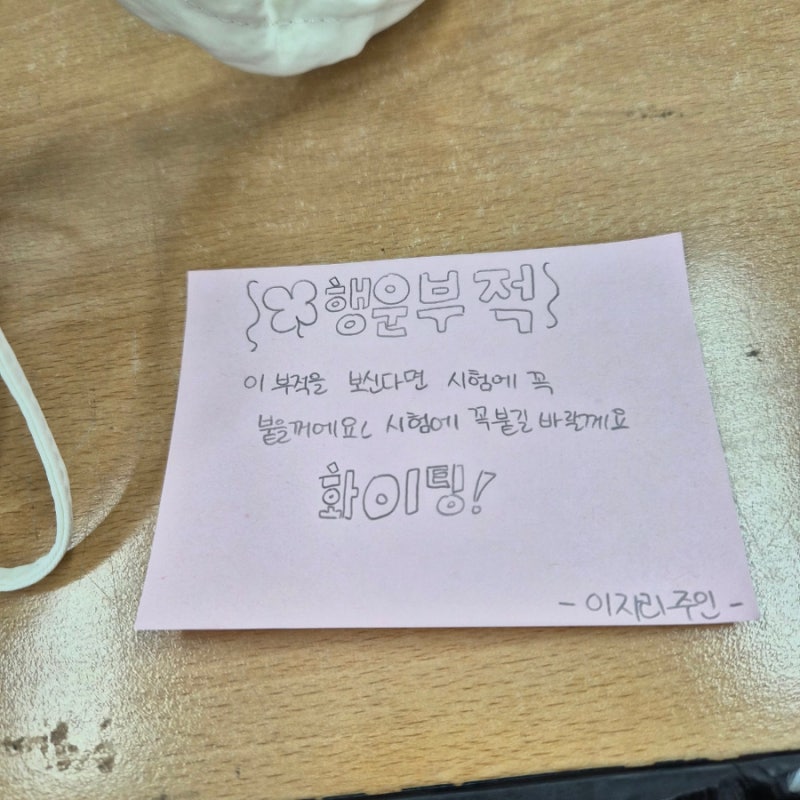 행운부적
이 부적을 보신다면 시험에 꼭
붙을꺼에요! 시험에 꼭붙길 바랄께요
화이팅!
- 이자리주인 -